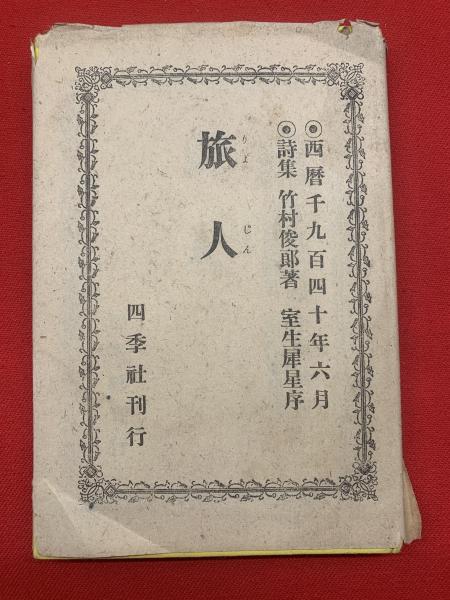 ◎西暦千九百四十年六月
◎詩集 竹村俊郎著 室生犀星序
旅人
りよじん
四季社刊行